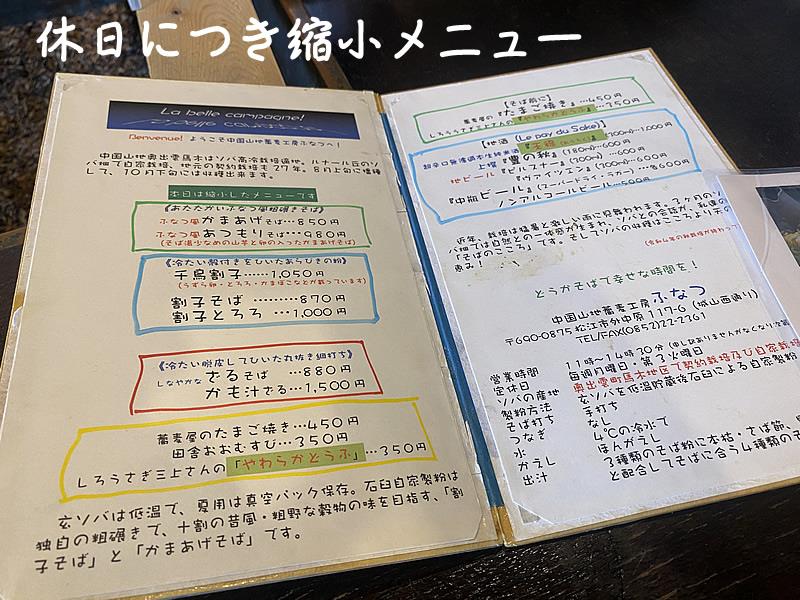 休日につき縮小メニュー
La belle campagne!
Benvenue! ようこそ中国山地蕎麦工房ふなつへ!
中国山地奥出雲馬木はソバ高冷栽培適地。ルナール丘のソ
バ畑で自家栽培、地元の契約栽培を27年。8月上旬に播種
して、10月下旬には収穫出来ます。
本日は縮小したメニューです
《あたたかいふなつ風粗碾きそば》
ふなつ風 かまあげそば…850円
ふなつ風 あつもりそば…980円
(そば湯少なめの山芋と卵の入ったかまあげそば)
《冷たい殻付きをひいたあらびきの粉》
千鳥割子……1,050円
(うずら卵・とろろ・かまぼこなどが載っています)
割子そば ………870円
割子とろろ …1,000円
《冷たい脱皮してひいた丸抜き細打ち》
しなやかな ざるそば …880円
かも汁ざる…1,500円
蕎麦屋のたまご焼き…450円
田舎おおむすび…350円
しろうさぎ三上さんの「やわらかとうふ」…350円
玄ソバは低温で、夏用は真空パック保存。石臼自家製粉は
独自の粗碾きで、十割の昔風・粗野な穀物の味を目指す、「割
子そば」と「かまあげそば」です。
【そば前に】
蕎麦屋の『たまご焼き』…450円
しろうさぎ三上さんの『やわらかとうふ』…350円
【地酒 (Le pay du Sake)】
超辛口無濾過本生純米酒
上撰『豊の秋』(180ml)…600円
地ビール『ピルスナー』
『ヴァイツェン』
『中瓶ビール』(スーパードライ・ラガー)…600円
ノンアルコールビール…500円
近年、栽培は猛暑と激しい雨に見舞われます。3ヶ月のソ
バ畑では自然との一体感が生まれ、ソバとの会話が、私達の
「そばのこころ」です。そしてソバの収穫はこころより天の
恵み!
とうかそばで幸せな時間を!
中国山地蕎麦工房 ふなつ
〒690-0875 松江市外中原 117-6 (城山西通り)
TEL/FAX(0852)22-2361
営業時間 11時~14時30分 (申し訳ありませんがなくなり次第
定休日 毎週月曜日・第3火曜日
ソバの産地 奥出雲町馬木地区で契約栽培及び自家栽培
製粉方法 玄ソバを低温貯蔵後石臼による自家製粉
そば打ち 手打ち
つなぎ なし
水 4℃の冷水で
かえし ほんがえし
出汁 3種類のそば粉に本枯・さば節・
と配合してそばに合う4種類のそ